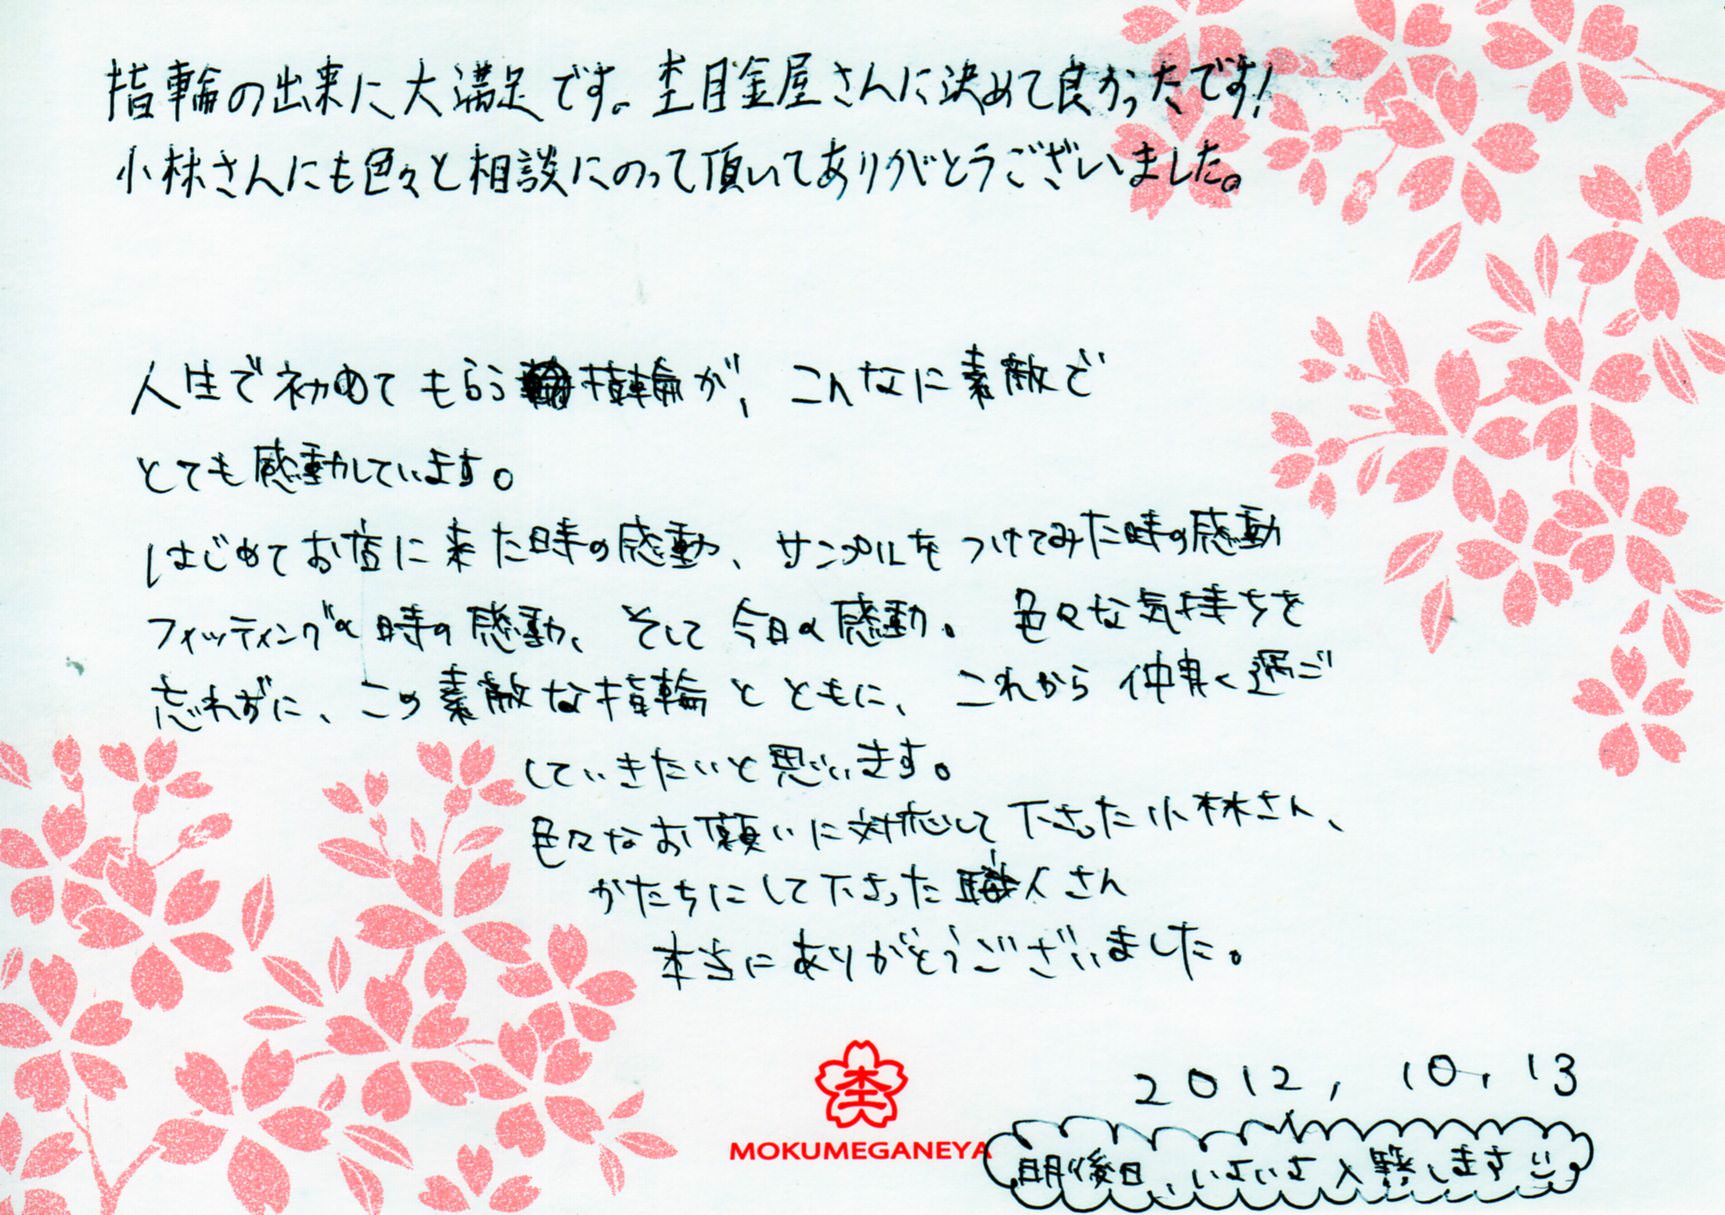 指輪の出来に大満足です。杢目金屋さんに決めて良かったです!
小林さんにも色々と相談にのって頂いてありがとうございました。
人生で初めてもらう指輪が、こんなに素敵で
とても感動しています。
はじめてお店に来た時の感動、サンプルをつけてみた時の感動
フィッティングの時の感動、そして今日の感動。色々な気持ちを
忘れずに、この素敵な指輪とともに、これから仲良く過ご
していきたいと思います。
色々なお願いに対応して下さった小林さん、
かたちにして下さった職人さん
本当にありがとうございました。
杢
MOKUMEGANEYA
2012,10,13
明後日、いよいよ入籍します